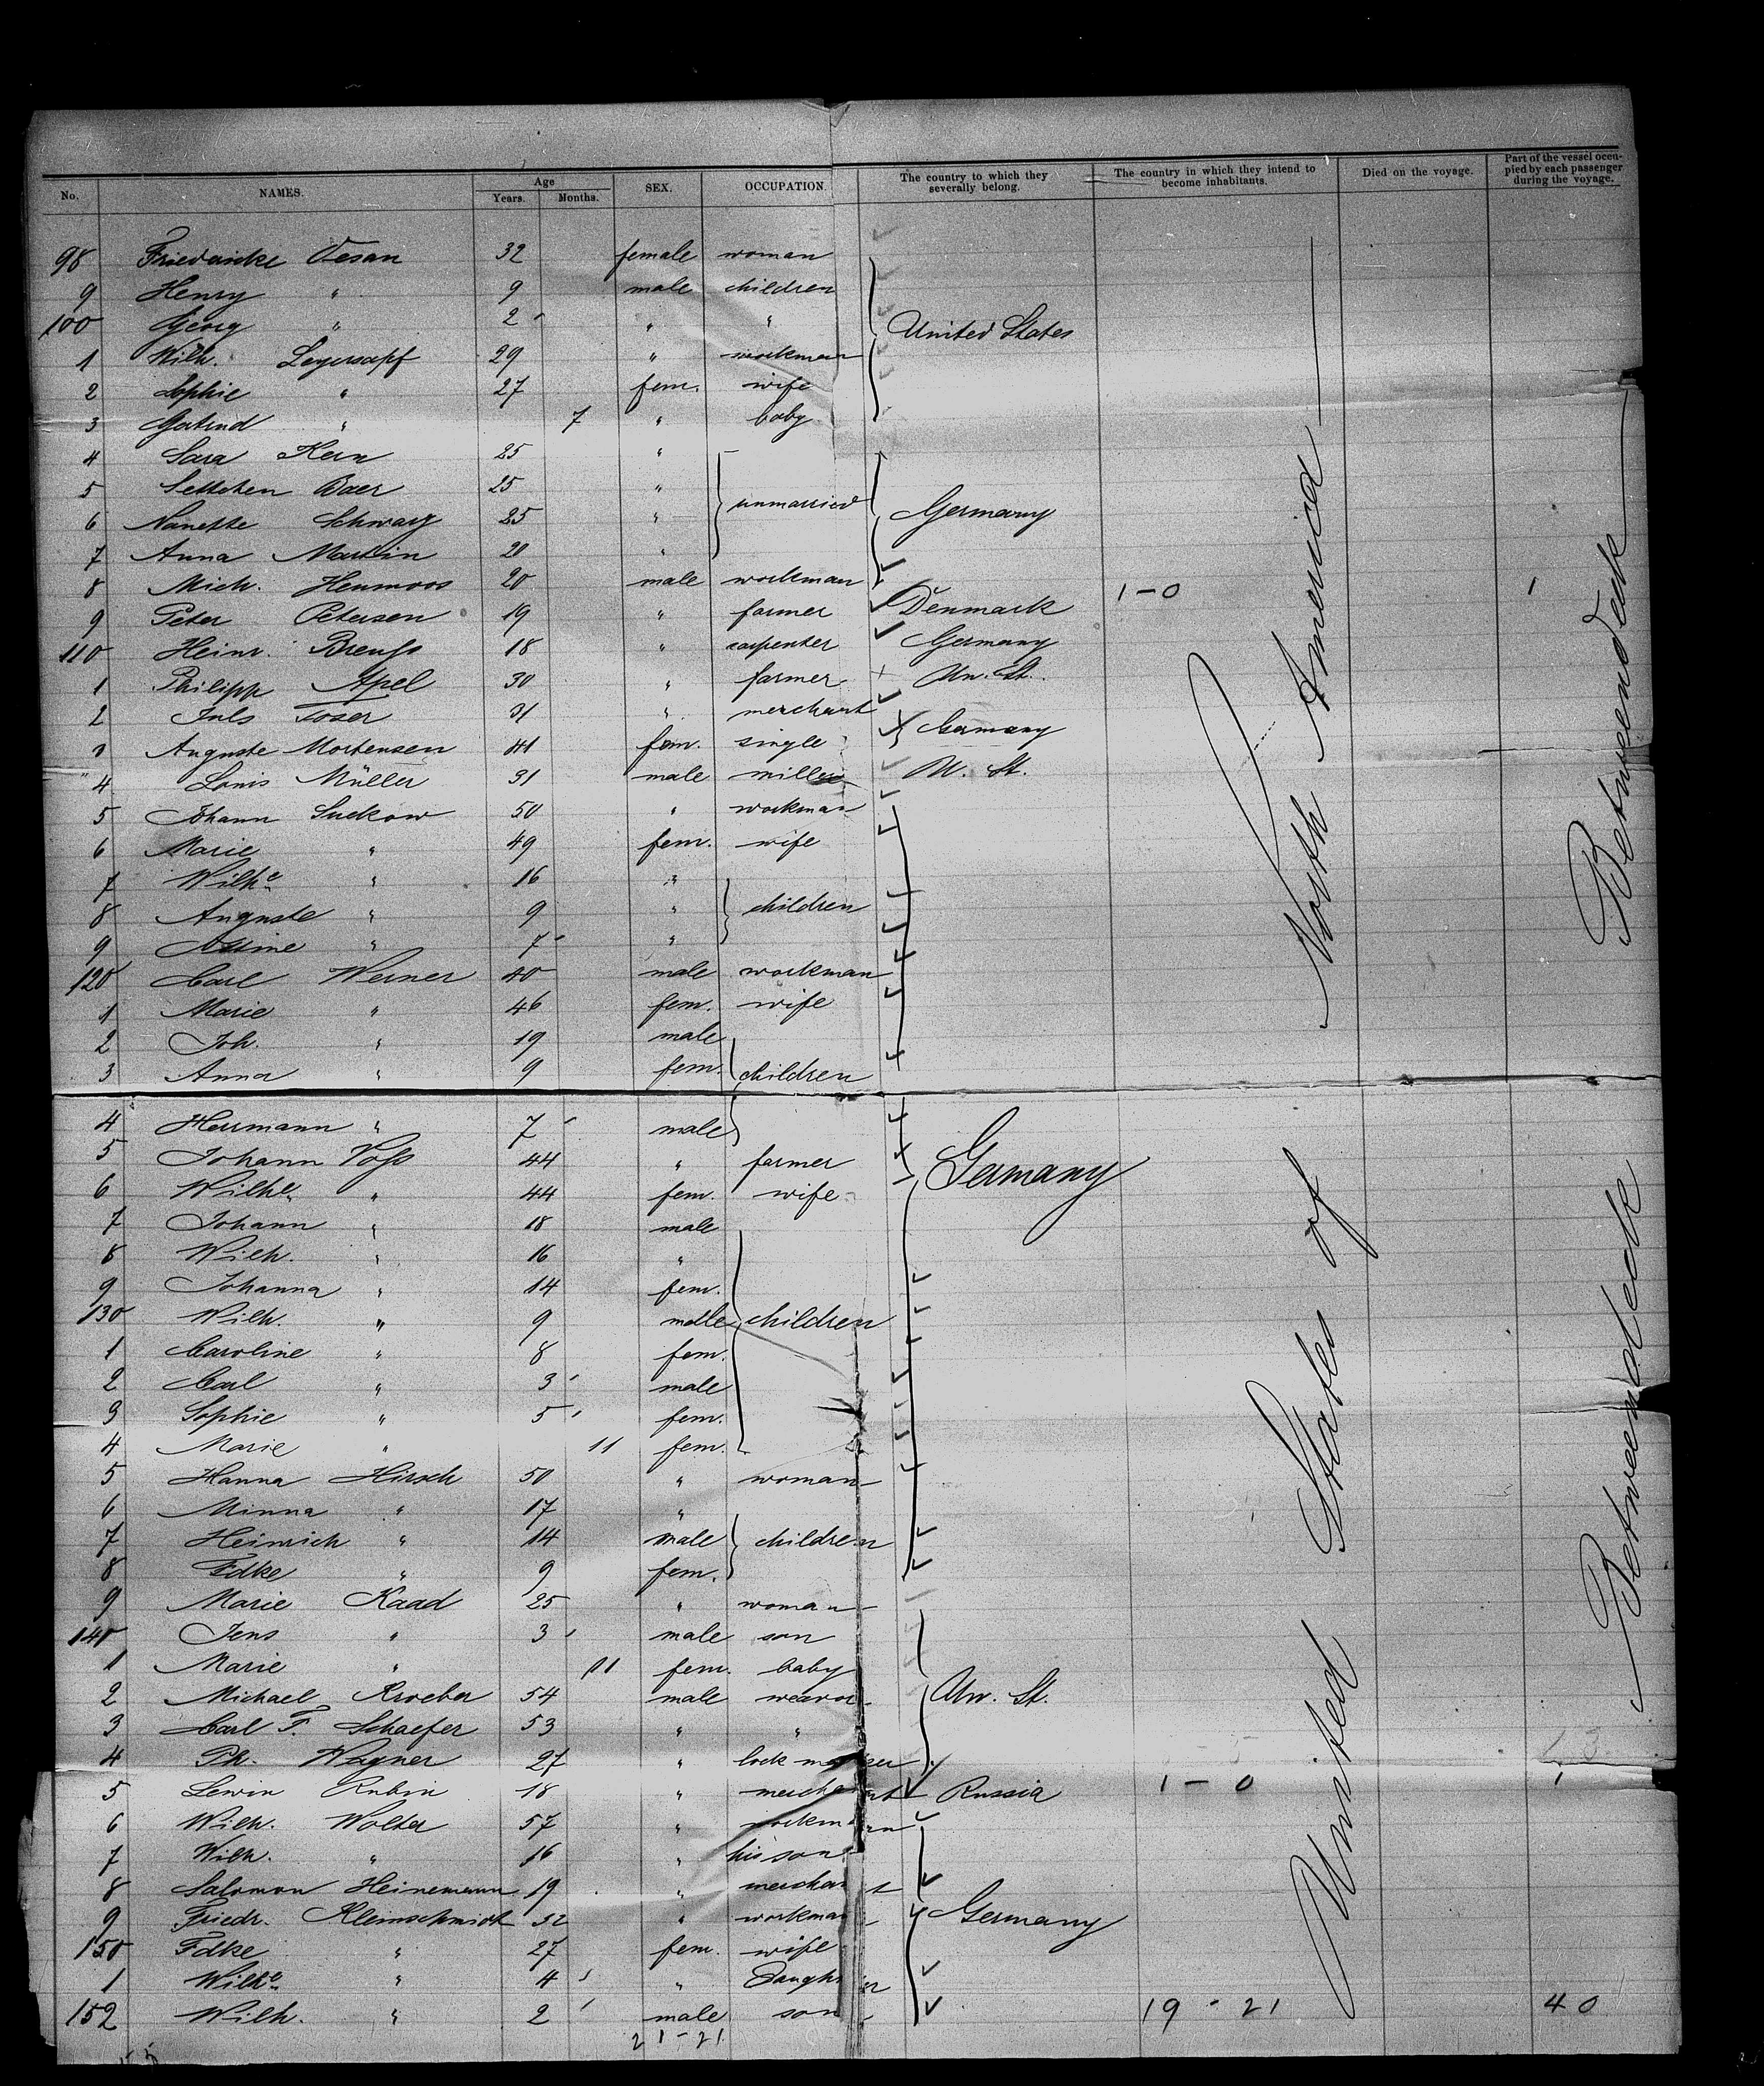 No. NAMES. Age Years. Months. SEX. OCCUPATION. The country to which they severally belong. The country in which they intend to become inhabitants. Died on the voyage. Part of the vessel occupied by each passenger during the voyage.
98 Friedericke Vesan 32 female woman
9 Henry " 9 male children
100 Georg " 2 " " United States
1 Wilh. Legersapf 29 " workman
2 Sophie " 27 fem. wife
3 Gertrud " 7 " baby
4 Sara Kern 25 "
5 Settchen Baer 25 " unmarried
6 Nanette Schwarz 25 " Germany
7 Anna Martin 20 "
8 Mich. Heumoos 20 male workman
9 Peter Petersen 19 " farmer Denmark 1-0 1
110 Heinr. Breuss 18 " carpenter Germany
1 Philipp Apel 30 " farmer Un. St.
2 Juls Toser 31 " merchant Germany
3 Auguste Mortensen 41 fem. single
4 Louis Müller 31 male miller U. St.
5 Johann Suckow 50 " workman
6 Marie " 49 fem. wife
7 Wilhe " 16 "
8 Auguste " 9 " children
9 " 7 "
120 Carl Werner 40 male workman
1 Marie " 46 fem. wife
2 Joh. " 19 male
3 Anna " 9 fem. children
4 Herrmann " 7 male
5 Johann Voss 44 " farmer Germany
6 Wilhe " 44 fem. wife
7 Johann " 18 male
8 Wilh. " 16 "
9 Johanna " 14 fem.
130 Wilh. " 9 male children
1 Caroline " 8 fem.
2 Carl " 3 male
3 Sophie " 5 fem.
4 Marie " 11 fem.
5 Hanna Hirsch 50 " woman
6 Minna " 17 "
7 Heinrich " 14 male children
8 Fdke " 9 fem.
9 Marie Kaad 25 " woman
140 Jens " 3 male son
1 Marie " 11 fem. baby
2 Michael Kroeber 54 male weavor Un. St.
3 Carl F. Schaefer 53 " "
4 Ph. Wagner 27 " lock maker
5 Lewin Rubin 18 " merchant Russia 1-0 1
6 Wilh. Wolter 57 " workman
7 Wilh. " 16 " his son
8 Salomon Heinemann 19 " merchant
9 Friedr. Kleinschmidt 32 " workman Germany
150 Fdke " 27 fem. wife
1 Wilhe " 4 " Daughter
152 Wilh. " 2 male son 19-21 40
21-21
United States of North America
Betweendeck Betweendeck